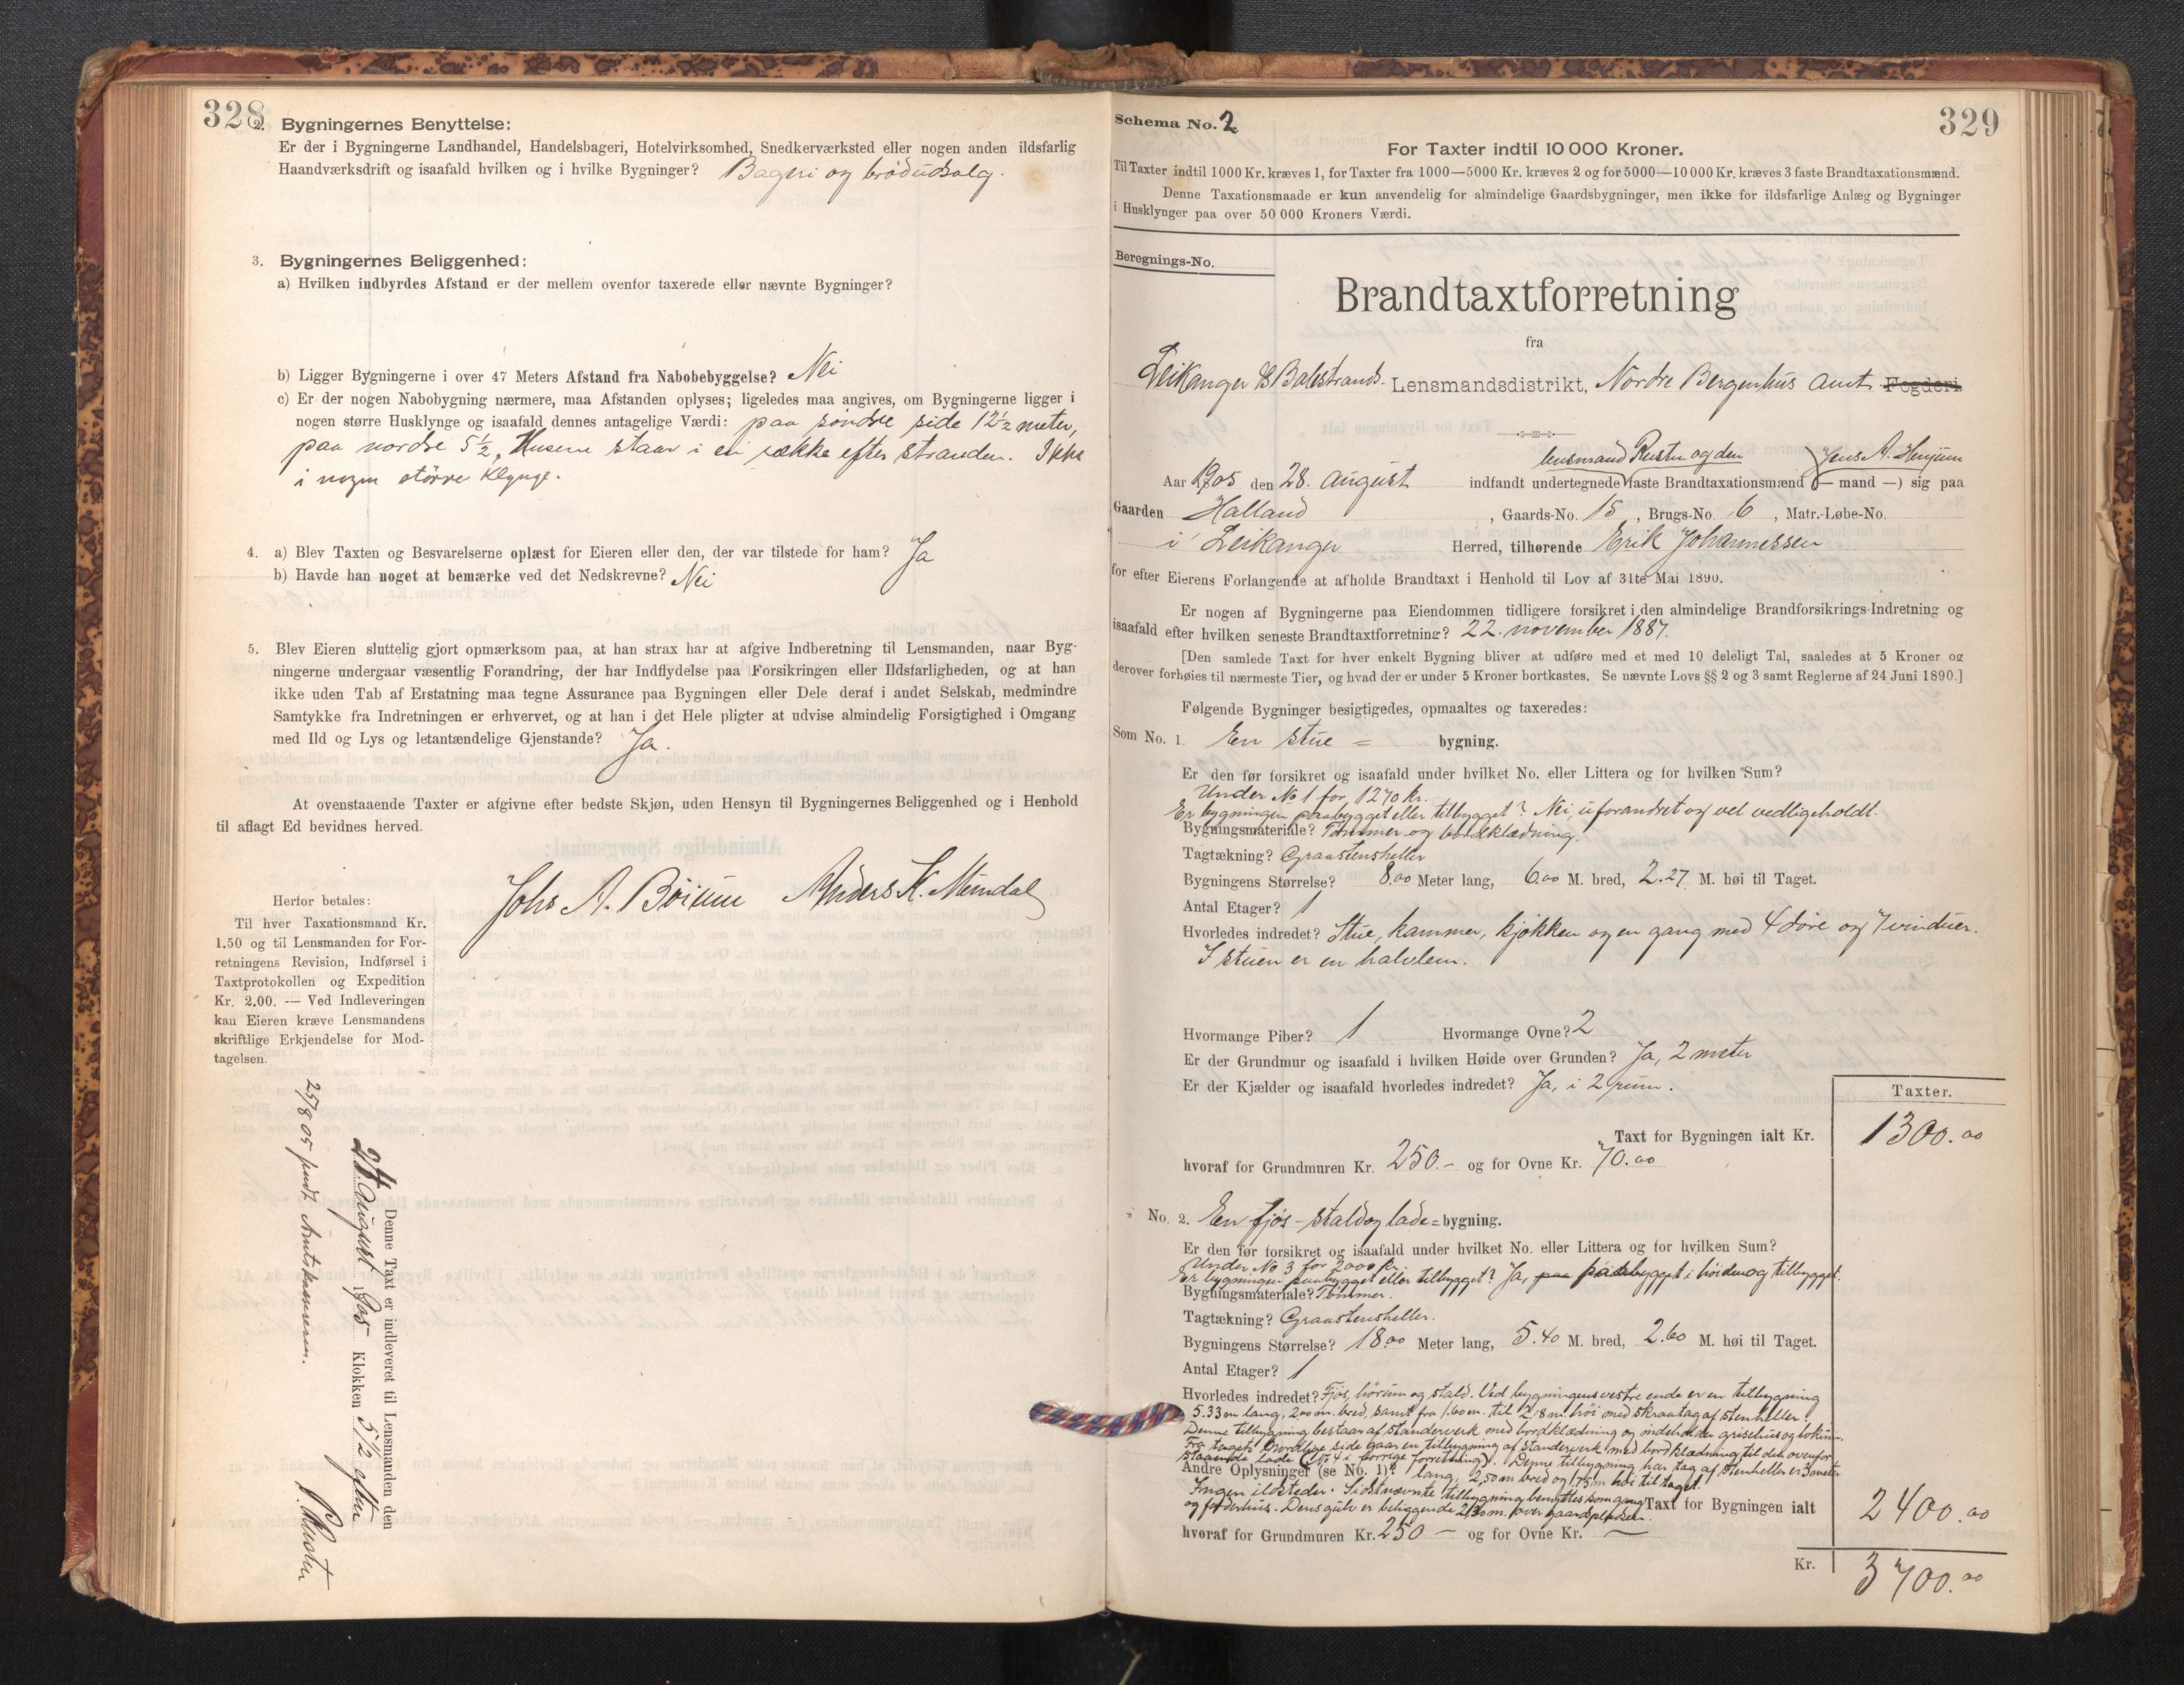 328
2. Bygningernes Benyttelse:
Er der i Bygningerne Landhandel, Handelsbageri, Hotelvirksomhed, Snedkerværksted eller nogen anden ildsfarlig
Haandværksdrift og isaafald hvilken og i hvilke Bygninger? Bageri og brödudsalg.
3. Bygningernes Beliggenhed:
a) Hvilken indbyrdes Afstand er der mellem ovenfor taxerede eller nævnte Bygninger?
b) Ligger Bygningerne i over 47 Meters Afstand fra Nabobebyggelse? Nei
c) Er der nogen Nabobygning nærmere, maa Afstanden oplyses; ligeledes maa angives, om Bygningerne ligger i
nogen større Husklynge og isaafald dennes antagelige Værdi: paa søndre side 12½ meter,
paa nordre 5½. Husene staar i en række efter stranden. Ikke
i nogen større Klynge.
4. a) Blev Taxten og Besvarelserne oplæst for Eieren eller den, der var tilstede for ham? Ja
b) Havde han noget at bemærke ved det Nedskrevne? Nei
5. Blev Eieren sluttelig gjort opmærksom paa, at han strax har at afgive Indberetning til Lensmanden, naar Byg-
ningerne undergaar væsentlig Forandring, der har Indflydelse paa Forsikringen eller Ildsfarligheden, og at han
ikke uden Tab af Erstatning maa tegne Assurance paa Bygningen eller Dele deraf i andet Selskab, medmindre
Samtykke fra Indretningen er erhvervet, og at han i det Hele pligter at udvise almindelig Forsigtighed i Omgang
med Ild og Lys og letantændelige Gjenstande? Ja.
At ovenstaaende Taxter er afgivne efter bedste Skjøn, uden Hensyn til Bygningernes Beliggenhed og i Henhold
til aflagt Ed bevidnes herved.
Johs A. Böium Anders K. Mundal
Herfor betales:
Til hver Taxationsmand Kr.
1.50 og til Lensmanden for For-
retningens Revision, Indførsel i
Taxtprotokollen og Expedition
Kr. 2.00. — Ved Indleveringen
kan Eieren kræve Lensmandens
skriftlige Erkjendelse for Mod-
tagelsen.
Denne Taxt er indleveret til Lensmanden den
24. August 1905 Klokken 5 1/2 efterm.
25/8 05 sendt Amtskassereren.
329
Schema No. 2
For Taxter indtil 10 000 Kroner.
Til Taxter indtil 1000 Kr. kræves 1, for Taxter fra 1000—5000 Kr. kræves 2 og for 5000—10 000 Kr. kræves 3 faste Brandtaxationsmænd.
Denne Taxationsmaade er kun anvendelig for almindelige Gaardsbygninger, men ikke for ildsfarlige Anlæg og Bygninger
i Husklynger paa over 50 000 Kroners Værdi.
Beregnings-No.
Brandtaxtforretning
fra
Leikanger & Balestrands Lensmandsdistrikt, Nordre Bergenhus Amt Fogderi
lensmand Rusten og den Jens A. Henjum
Aar 1905 den 28. August indfandt undertegnede faste Brandtaxationsmænd (— mand —) sig paa
Gaarden Halland, Gaards-No. 15, Brugs-No. 6, Matr.-Løbe-No.
i Leikanger Herred, tilhørende Erik Johannessen
for efter Eierens Forlangende at afholde Brandtaxt i Henhold til Lov af 31te Mai 1890.
Er nogen af Bygningerne paa Eiendommen tidligere forsikret i den almindelige Brandforsikrings-Indretning og
isaafald efter hvilken seneste Brandtaxtforretning? 22. november 1887.
[Den samlede Taxt for hver enkelt Bygning bliver at udføre med et med 10 deleligt Tal, saaledes at 5 Kroner og
derover forhøies til nærmeste Tier, og hvad der er under 5 Kroner bortkastes. Se nævnte Lovs §§ 2 og 3 samt Reglerne af 24 Juni 1890.]
Følgende Bygninger besigtigedes, opmaaltes og taxeredes:
Som No. 1. En stue = bygning.
Er den før forsikret og isaafald under hvilket No. eller Littera og for hvilken Sum?
Under No 1 for 1270 kr.
Er bygningen paabygget eller tilbygget? Nei, uforandret og vel vedligeholdt.
Bygningsmateriale? Tømmer og bordklædning.
Tagtækning? Graastensheller
Bygningens Størrelse? 8.00 Meter lang, 6.00 M. bred, 2.27 M. høi til Taget.
Antal Etager? 1
Hvorledes indredet? Stue, kammer, kjøkken og en gang med 4 døre og 7 vinduer.
I stuen er en halvlem.
Hvormange Piber? 1 Hvormange Ovne? 2
Er der Grundmur og isaafald i hvilken Høide over Grunden? Ja, 2 meter
Er der Kjælder og isaafald hvorledes indredet? Ja, i 2 rum.
Taxter.
Taxt for Bygningen ialt Kr. 1300.00
hvoraf for Grundmuren Kr. 250.- og for Ovne Kr. 70.00
" No. 2. En fjøs- stald og lade = bygning.
Er den før forsikret og isaafald under hvilket No. eller Littera og for hvilken Sum?
Under No 3 for 2000 kr.
Er bygningen paabygget eller tilbygget? Ja, paa paabygget i høiden og tilbygget.
Bygningsmateriale? Tømmer.
Tagtækning? Graastensheller.
Bygningens Størrelse? 18.00 Meter lang, 5.40 M. bred, 2.60 M. høi til Taget.
Antal Etager? 1
Hvorledes indredet? Fjøs, hørum og stald. Ved bygningens vestre ende er en tilbygning
5.33 m lang, 2.00 m. bred, samt fra 1.60 m. til 2,18 m. høi med skraatag af stenheller.
Denne tilbygning bestaar af standerverk med bordklædning og indeholder grisehus og
Fra tagets nordlige side gaar en tilbygning af standerverk med bordklædning til den ovenfor
staaende lade (No 4 i forrige forretning). Denne tilbygning har tag af stenheller er 3 meter
Andre Oplysninger (se No. 1)? lang, 2,50 m bred og 1,75 m høi til taget.
Ingen ildsteder. Sidstnævnte tilbygning benyttes som gang
og foderhus. Dens gulv er beliggende 2,30 m. over gaardspladsen.
Taxt for Bygningen ialt 2400.00
hvoraf for Grundmuren Kr. 250 — og for Ovne Kr. —
Kr. 3700.00